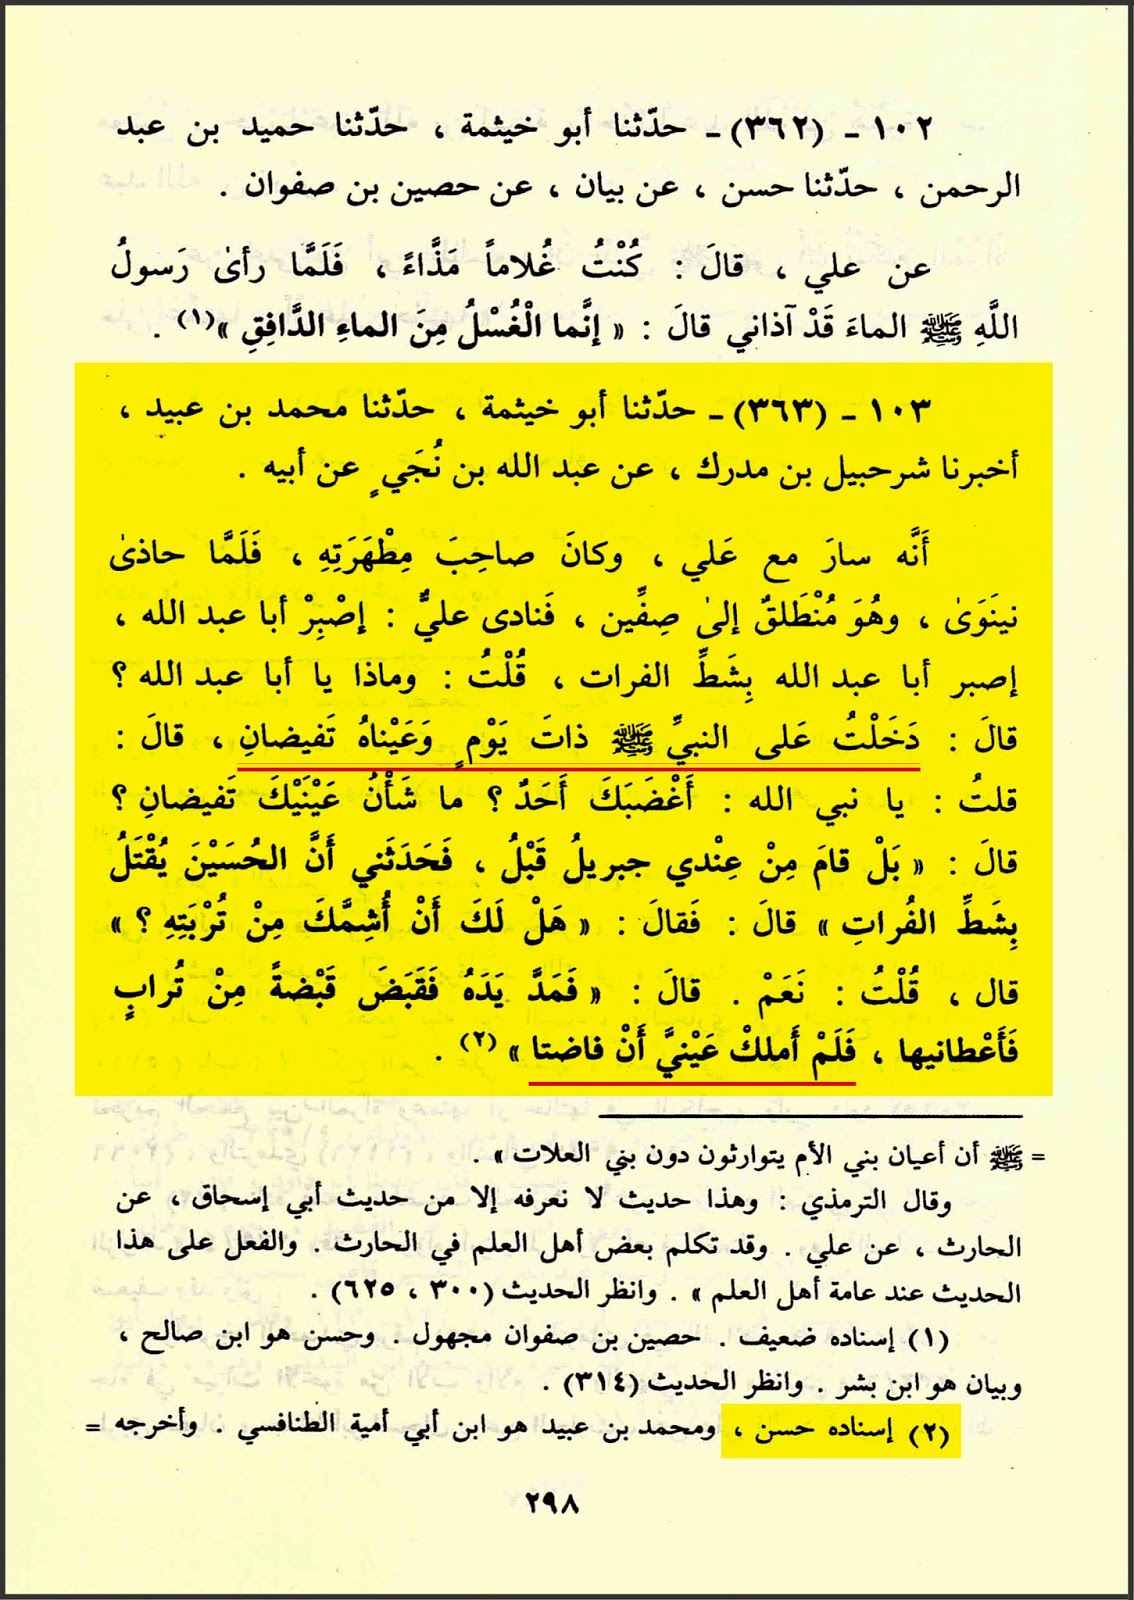 ١٠٢ - (٣٦٢) - حدّثنا أبو خيثمة ، حدّثنا حميد بن عبد
الرحمن ، حدّثنا حسن ، عن بيان ، عن حصين بن صفوان .
عن علي ، قالَ : كُنْتُ غُلاماً مَذَّاءً ، فَلَمَّا رأىٰ رَسولُ
اللَّهِ ﷺ الماءَ قَدْ آذاني قالَ : « إنَّما الْغُسْلُ مِنَ الماءِ الدَّافِقِ »(١) .
١٠٣ - (٣٦٣) - حدّثنا أبو خيثمة ، حدّثنا محمد بن عبيد ،
أخبرنا شرحبيل بن مدرك ، عن عبد الله بن نُجَيٍ عن أبيه .
أَنَّه سارَ مع عَلي ، وكانَ صاحِبَ مِطْهَرَتِهِ ، فَلَمَّا حاذىٰ
نينَوَىٰ ، وهُوَ مُنْطَلقٌ إلىٰ صِفِّين ، فَنادى عليٌّ : إصْبِرْ أبا عبد الله ،
إصبر أبا عبد الله بِشَطِّ الفرات ، قُلْتُ : وماذا يا أبا عبد الله ؟
قالَ : دَخَلْتُ عَلى النبيِّ ﷺ ذاتَ يَوْمٍ وَعَيْناهُ تَفيضانِ ، قالَ :
قلتُ : يا نبي الله : أَغْضَبَكَ أَحَدٌ ؟ ما شَأْنُ عَيْنَيْكَ تَفيضانِ ؟
قالَ : « بَلْ قامَ مِنْ عِنْدي جبريلُ قَبْلُ ، فَحَدَثَني أَنَّ الحُسَيْنَ يُقْتَلُ
بِشَطِّ الفُراتِ » قالَ : فَقالَ : « هَلْ لَكَ أَنْ أُشِمَّكَ مِنْ تُرْبَتِهِ ؟ »
قال ، قُلْتُ : نَعَمْ . قالَ : « فَمَدَّ يَدَهُ فَقَبَضَ قَبْضَةً مِنْ تُرابٍ
فَأَعْطانيها ، فَلَمْ أَملكْ عَيْنيَّ أَنْ فاضَتا » (٢) .
= ﷺ أن أعيان بني الأم يتوارثون دون بني العلات » .
وقال الترمذي : وهذا حديث لا نعرفه إلا من حديث أبي إسحاق ، عن
الحارث ، عن علي . وقد تكلم بعض أهل العلم في الحارث . والفعل على هذا
الحديث عند عامة أهل العلم » . وانظر الحديث (٣٠٠ ، ٦٢٥) .
(١) إسناده ضعيف . حصين بن صفوان مجهول . وحسن هو ابن صالح ،
وبيان هو ابن بشر . وانظر الحديث (٣١٤) .
(٢) إسناده حسن ، ومحمد بن عبيد هو ابن أبي أمية الطنافسي . وأخرجه =
٢٩٨